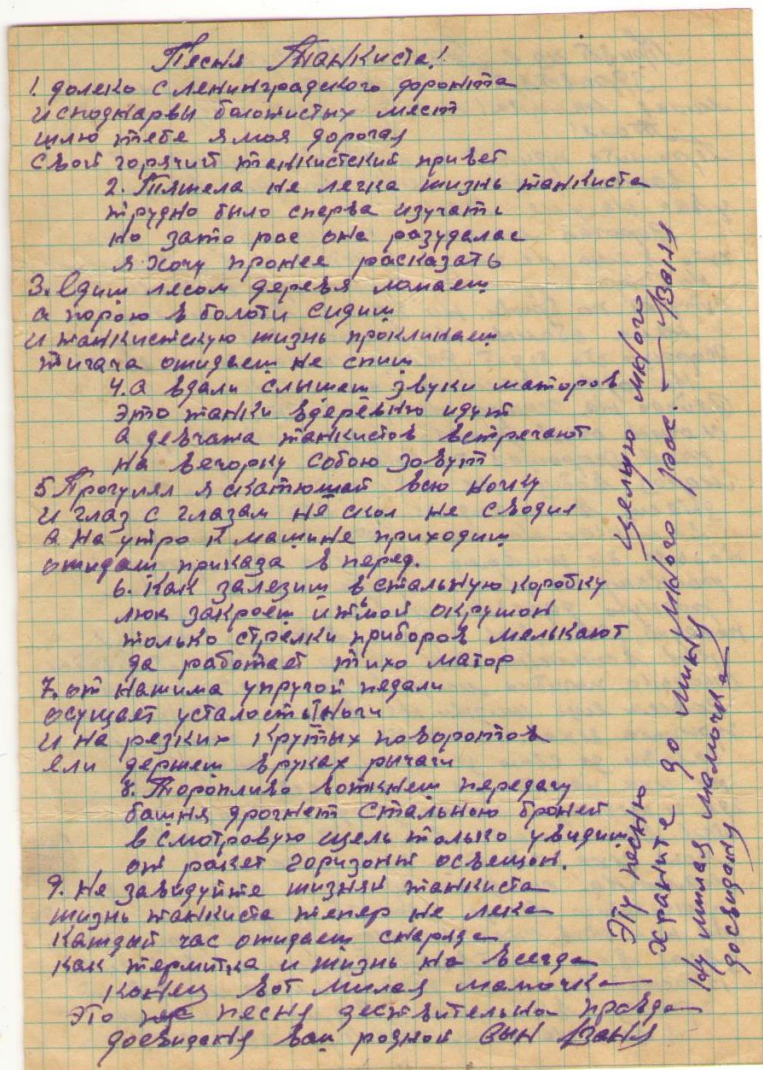 Песня Танкиста!
1. долеко с ленинградского форонта
исподнарвы болотистых мест
шлю тебе я моя дорогая
свой горячий танкистский привет
2. Тяжела не легка жизнь танкиста
трудно было сперва изучать
но зато рас она разудалае
я хочу пронее расказать
3. Едиш лесом деревя ломаеш
а порою в болоти сидиш
и танкистскую жизнь проклинаеш
тигача ожидаеш не спиш
4. а вдали слышеш звуки маторов
это танки вдеревню идут
а девчата танкистов встречают
на вечорку собою зовут
5 Прогулял я скатюшай всю ночку
и глаз с глазам не скол не сводил
а на утро к машине приходиш
ожидаш приказа в перед.
6. как залезиш в стальную коробку
люк закроеш и тьмой окружон
только стрелки приборов мелькают
да работает тихо матор
7. от нажима упругой педали
осущает усталость ноги
и на резких крутых поворотов
ели держеш вруках рычаги
8. Торопливо воткнеш передачу
башня дрогнет стальною броней
в смотровую щель только увидиш
от ракет горизонт освещон.
9. не завидуйте жизняй танкиста
жизнь танкиста тепер не лека
каждый час ожидаеш снаряда
как термитка и жизнь на всегда
конец вот милая мамочка
это песня действительна правда
досвиданя ваш родной сын Ваня
Эту песню
храните до мину
ну милая мамочка
досвиданя
целую много
много рас. — Ваня